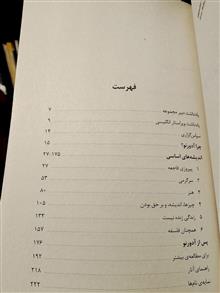 فهرست
یادداشت دبیر مجموعه ۷
یادداشت ویراستار انگلیسی ۹
سپاس‌گزاری ۱۴
چرا آدورنو؟ ۱۵
اندیشه‌های اساسی ۲۷-۱۷۵
۱ پیروزی فاجعه
۲ سرگرمی ۵۳
۳ هنر ۸۰
۴ چیزها، اندیشه، و بر حق بودن ۱۰۵
۵ زندگی زنده نیست ۱۳۳
۶ همچنان فلسفه ۱۵۷
پس از آدورنو ۱۷۶
برای مطالعه‌ی بیشتر ۱۹۲
راهنمای آثار ۲۱۸
نمایه‌ی نام‌ها ۲۲۲